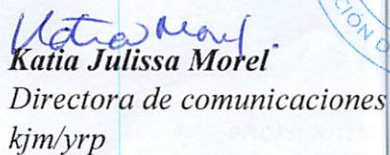 Katia Morel.
Katia Julissa Morel
Directora de comunicaciones
kjm/yrp